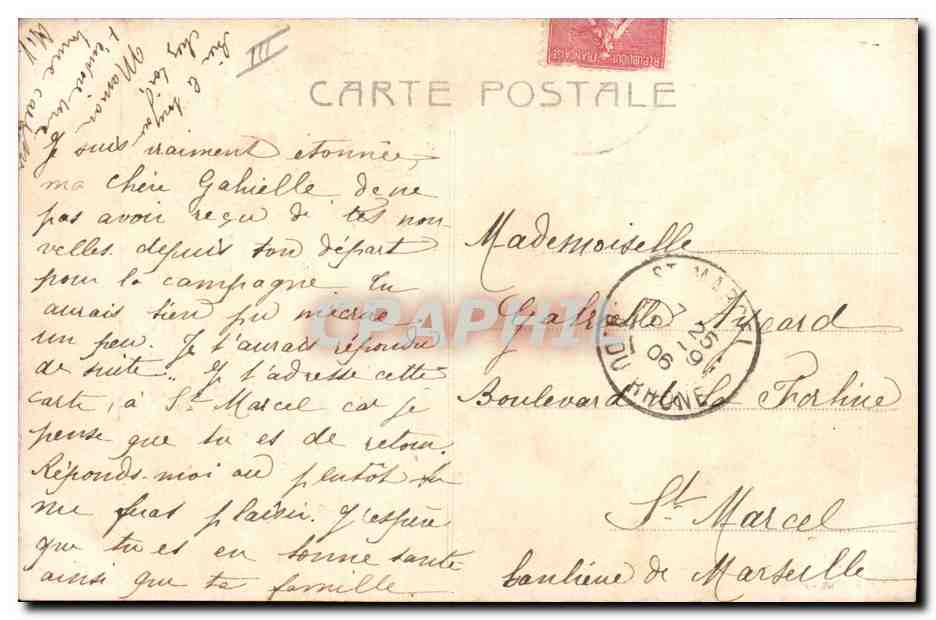 III
CARTE POSTALE
RÉPUBLIQUE FRANÇAISE
Maman
t'envoie une
bonne
Je suis vraiment étonnée,
ma chère Gabrielle, de ne
pas avoir reçu de tes nou-
velles depuis ton départ
pour la campagne. Tu
aurais bien pu m'écrire
un peu. Je t'aurais répondu
de suite.. Je t'adresse cette
carte, à St Marcel car je
pense que tu es de retour.
Réponds-moi au plutôt tu
me feras plaisir. J'espère
que tu es en bonne santé
ainsi que ta famille.
Mademoiselle
Gabrielle Aycard
Boulevard de la Forbine
St Marcel
banlieue de Marseille
ST MARCEL
7 25
06
DU RHONE
CPARHIL